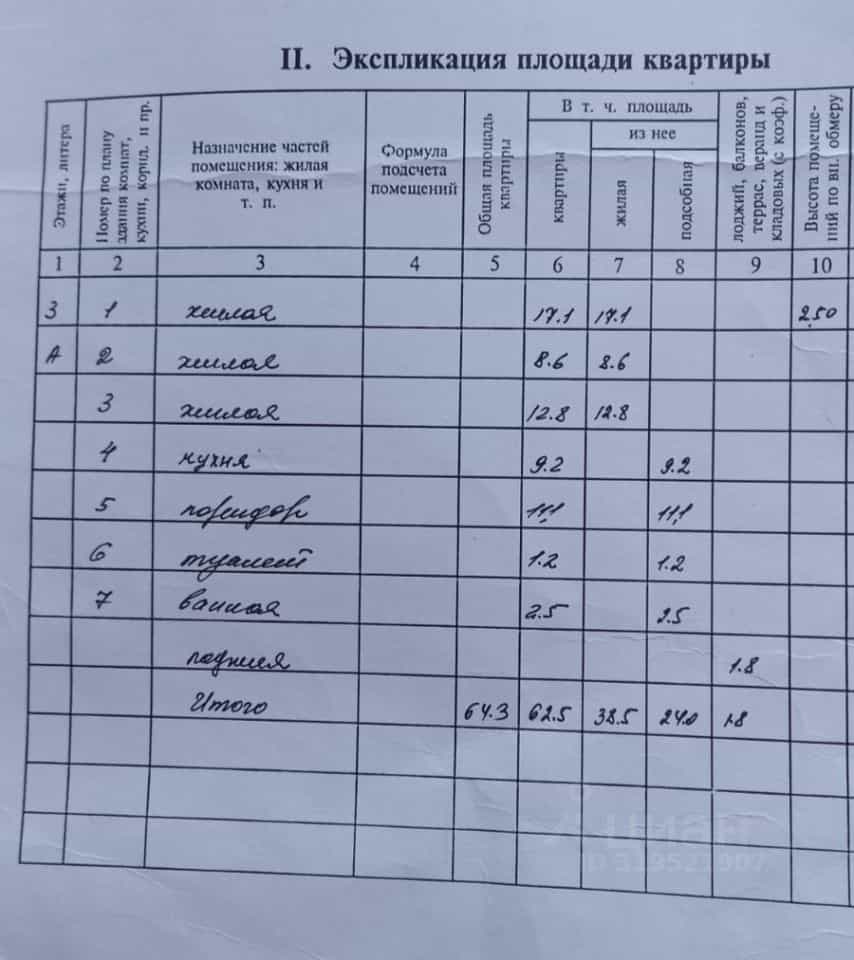 II. Экспликация площади квартиры
Этажи, литера
Номер по плану здания комнат, кухни, корид. и пр.
Назначение частей помещения: жилая комната, кухня и т. п.
Формула подсчета помещений
Общая площадь квартиры
В т. ч. площадь
из нее
квартиры
жилая
подсобная
лоджий, балконов, террас, веранд и кладовых (с коэф.)
Высота помещений по вн. обмеру
1 2 3 4 5 6 7 8 9 10
3 1 жилая 17.1 17.1 2.50
А 2 жилая 8.6 8.6
3 жилая 12.8 12.8
4 кухня 9.2 9.2
5 коридор 11,1 11,1
6 туалет 1.2 1.2
7 ванная 2.5 2.5
лоджия 1.8
Итого 64.3 62.5 38.5 24.0 1.8
циан